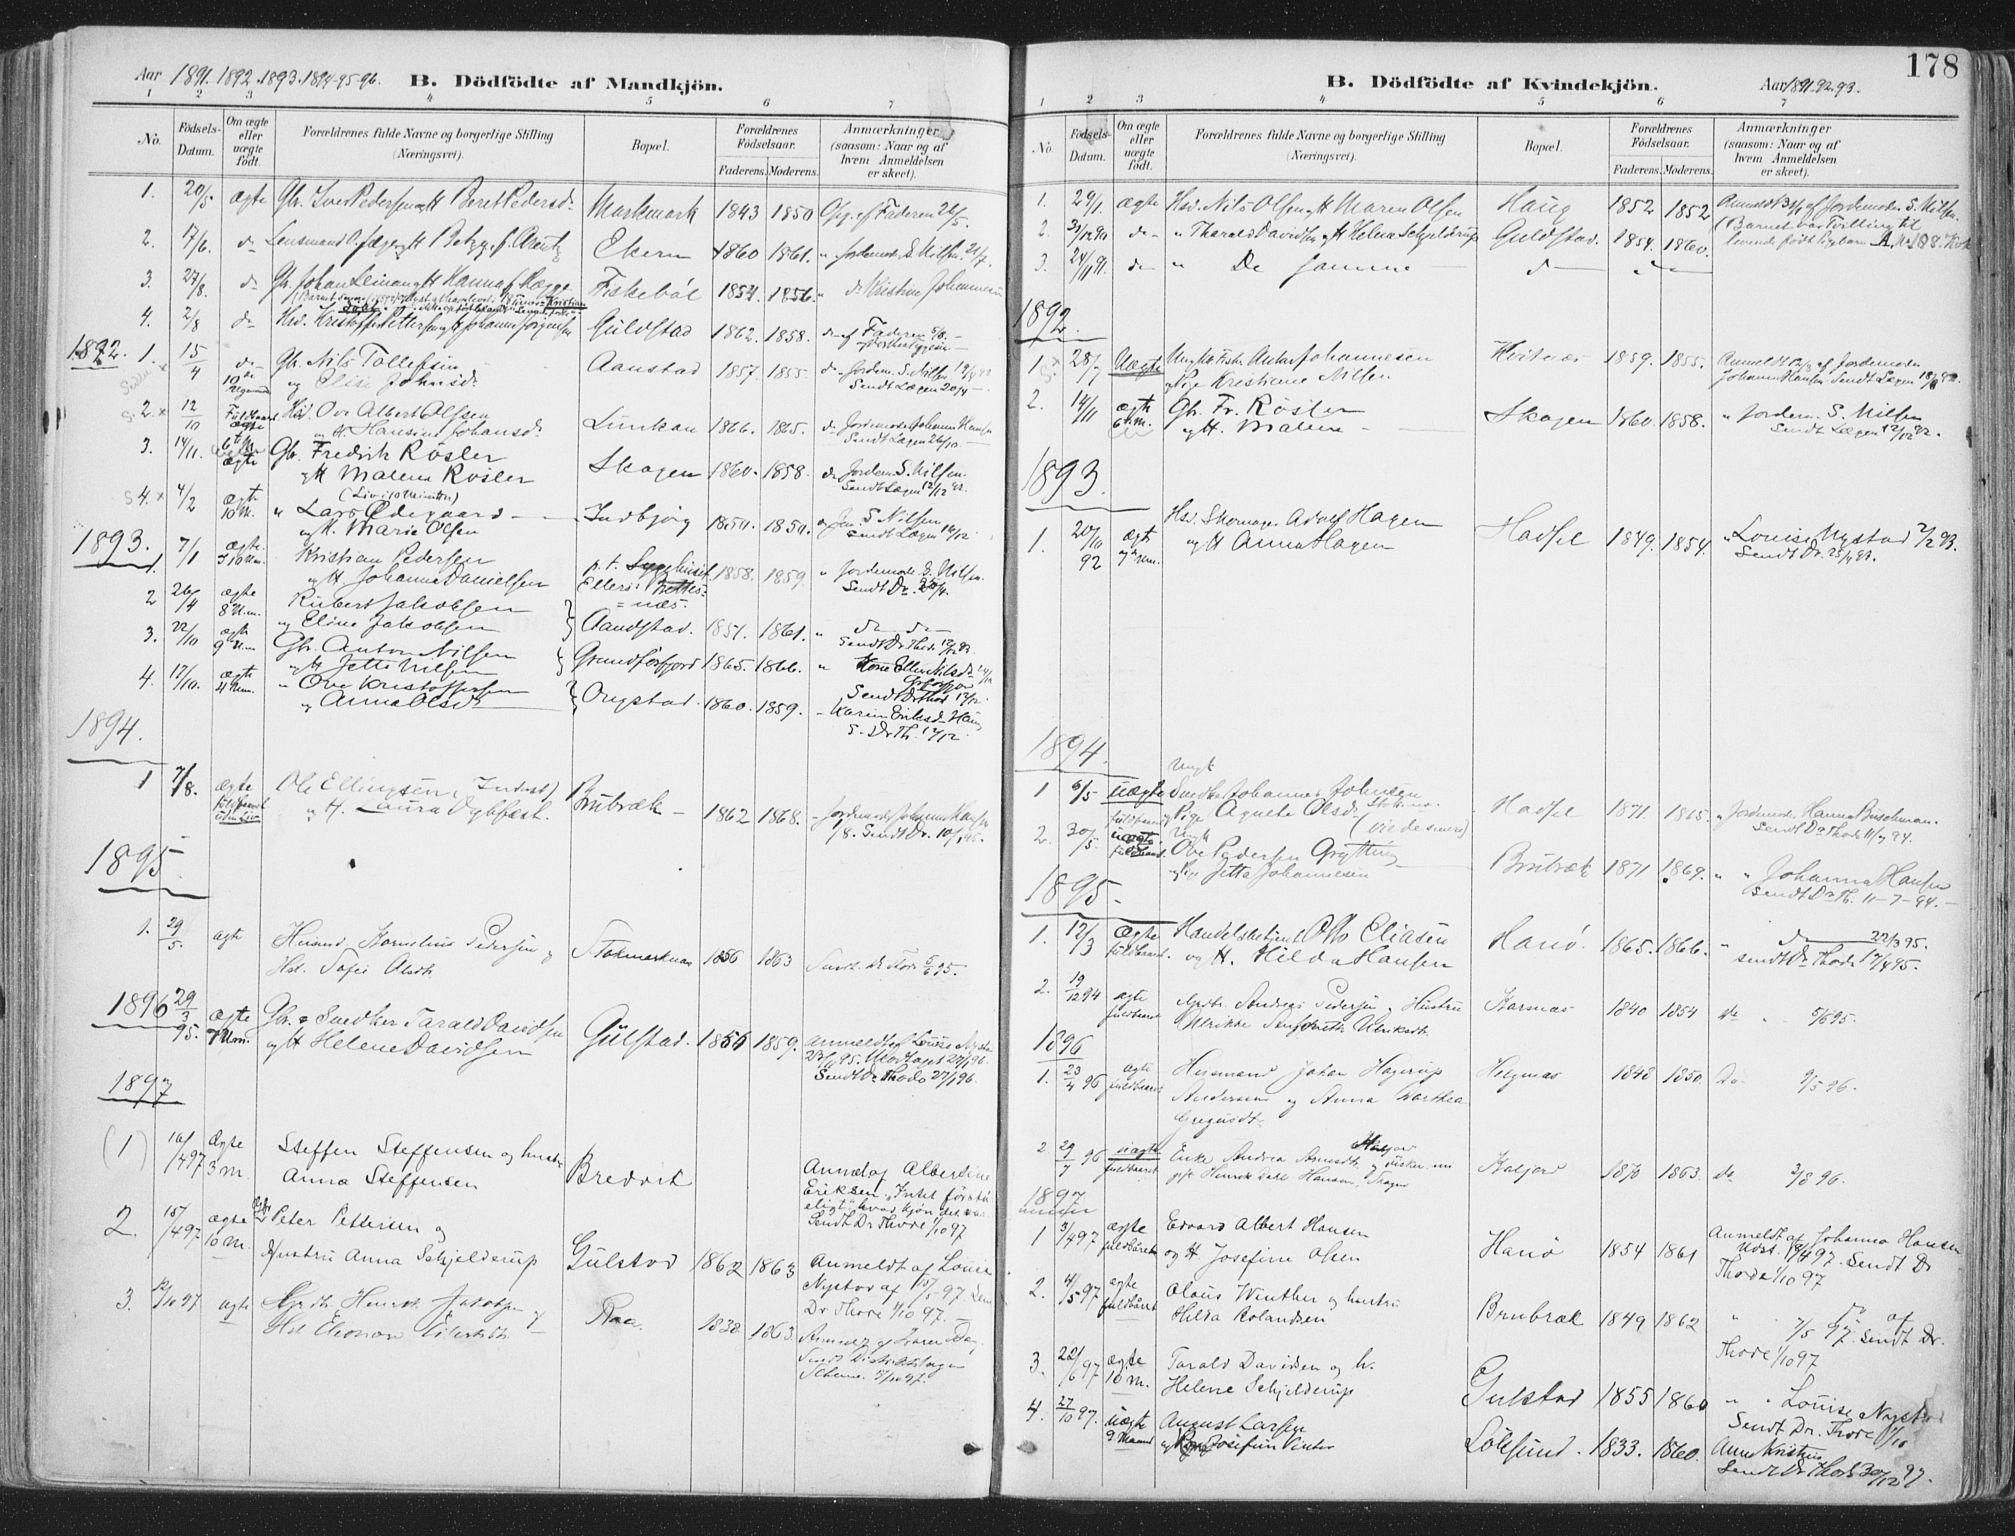 Aar 1891. 1892. 1893. 1894-95-96. B. Dödfödte af Mandkjön.
1 2 3 4 5 6 7
No. Födsels-Datum. Om ægte eller uægte födt. Forældrenes fulde Navne og borgerlige Stilling (Næringsvei). Bopæl. Forældrenes Födselsaar. Faderens. Moderens. Anmærkninger (saasom: Naar og af hvem Anmeldelsen er skeet).
1. 20/5 ægte Gbr. Iver Pedersen og H Beret Pedersd. Markmark 1843 1850 Opg. af Faderen 26/5.
2. 17/6. do Lensmand O. Jæger og H Ekern 1860 1861. " Jordemoder S. Nilsen
3. 27/8. do Gbr. Johan Leiman og H Hanna f. Hegge Fiskebøl 1854. 1856. " do Kristine Johannesen
4. 2/8 do Hsd. Kristoffer Pettersen og H Johanna Jørgensen Guldstad 1862. 1858. do af Faderen
1892. 1. 15/4 do Gbr. Nils Tollefsen
10de og Elise Johnsd. Aanstad 1857. 1855. do Jordem. S. Nilsen
Sendt Lægen 20/4
2. 12/10 Fuldbaaret ægte Hsd. Ove Albert Olsen
og H. Hansine Johansd. Linkan 1866. 1865. do Jordemoder Johanna Hansen
Sendt Lægen 26/10.
3. 14/11. 6 M. ægte Gbr. Fredrik Røsler
og H Malena Røsler Skagen 1860. 1858. do Jordem. S. Nilsen.
Sendt Lægen 12/12 92.
(Liv i 10 Minutter)
4. 4/2 ægte 10 M. " Lars Ødegaard
og H. Marie Olsen Indbjörg 1850. 1850. S. Nilsen
Sendt Lægen 14/12.
1893.
1. 7/1 ægte. Kristian Pedersen
og H Johanna Danielsen p. t. 1858. 1859. " Jordemode S. Nilsen.
Sendt Dr.
2 26/4 ægte 8 M. Rubert Jakobsen
og Eline Jakobsen Aandstad. 1851. 1861. " do do
Sendt Dr. Thode 12/12 93.
3. 22/10 ægte 9 M. Gbr. Anton Nilsen
og H Jette Nilsen Grundførfjord 1865. 1866. " Kone Ellen Nilsd.
Sendt Dr. Thode 12/12.
4. 17/10. ægte " Ove Kristoffersen
og Anna Olsd. Ongstad. 1860. 1859. - Karin Eriksd. Haug
S. Dr. Th. 12/12.
1894.
1 7/8. ægte fuldbaaret uden Liv Ole Ellingsen (Inderst)
og H. Laura Dybfest. Brubræk 1862 1868. Jordemoder Johanna Hansen
1/8. Sendt Dr. 10/1 95.
1895
1. 29/5. ægte Husmd. Kornelius Pedersen og
Hst. Sofie Olsdt. Stokmarknæs 1856 1863 Sendt. Dr. Thode 5/6 95.
1896 29/3 95. ægte 7 M. Gbr. & Snedker Tarald Davidsen
og H Helene Davidsen Gülstad. 1856 1859. Anmeldt af Louise Nystad
23/11 95. Modtaget 27/1 96.
Sendt Dr. Thode 27/1 96.
1897
(1) 16/4 97 Ægte 3 m. Steffen Steffensen og hustr
Anna Steffensen Bredvik Anmeld af Albertine
Eriksen. "Intet förstaa-
eligt" hvad kjön det var.
Sendt Dr Thode 1/10 97
2. 15/4 97 ægte 10 M. Peter Pettersen og
Hustru Anna Schjelderup Gulstad 1862 1863 Anmeldt af Louise
Nystad af 15/5 97. Sendt
Dr. Thode 1/10 97.
3. 10 97 ægte Henrik Jakobsen og
Hst Eleonora Eilertsdt. Raa. 1838 1863.
Sendt Distriktslægen

178
B. Dödfödte af Kvindekjön. Aar 1891. 92. 93.
1 2 3 4 5 6 7
No. Födsels-Datum. Om ægte eller uægte födt. Forældrenes fulde Navne og borgerlige Stilling (Næringsvei). Bopæl. Forældrenes Födselsaar. Faderens. Moderens. Anmærkninger (saasom: Naar og af hvem Anmeldelsen er skeet).
1. 29/1. ægte Hsd. Nils Olsen og H Maren Olsen Haug 1852 1852 Anmeldt 31/1 af Jordemoder S. Nilsen.
(Barnet var Tvilling til
2. 31/12 90 do " Tharald Davidsen og H Helene Schjelderup Guldstad. 1854. 1860. levende födt Pigebarn
3. 24/11 91. do " De samme do
1892.
1 28/7 Uægte Ungk. Fisker Anton Johannesen
og Pige Kristiane Nilsen Hvitnæs 1859. 1855. Anmeldt af Jordemoder
Johanna Hansen. Sendt Lægen
2. 14/11 ægte 6 M. Gbr. Fr. Røsler
og H. Malena Skagen 1860. 1858. " Jordem. S. Nilsen
Sendt Lægen 12/12 92.
1893.
1. 20/10 92 ægte 7 M. Hsd. Skomager Adolf Hagen
og H Anna Hagen Hadsel 1849. 1854. " Louise Nystad 2/2 93.
Sendt Dr. 25/4 93.
1894.
Ungk.
1 6/5 uægte fuldbaaren Snedker Johannes Johnsen Stokmn.
og Pige Agnete Olsd. Hadsel 1871. 1865. " Jordemoder Hanna Buschman.
Sendt Dr Thode 11/7 94.
2. 30/5 uægte fuldbaaret. Ungk. Ove Pedersen Grytting
og Pige Jetta Johannesen Brubræk 1871 1869. " " Johanna Hansen
Sendt Dr. Th. 11-7-94.
1895.
1. 12/3 ægte fuldbaaret. Handelsbetjent Otto Eliasen
og H. Hilda Hansen Hanö. 1865. 1866. " do 22/3 95.
sendt Dr. Thode 17/4 95.
2. 19/12 94 ægte fuldbaaret Andreas Pedersen og Hustru
Ulrikke Ulriksdt. Korsnæs 1840 1854 Do 5/5 95.
1896
1. 23/4 96 ægte fuldbaaret Husmand Johan Hagerup
Andersen og Anna Dorthea
Gregusdt. Helgenæs 1848 1850. Do 9/5 96.
2 29/7 96 uægte fuldbaaret Enke Andrea Arntsdt.
Henrik Dahl Hansen, Skagen Kaljord 1870 1863. Do 3/8 96.
1897
1 3/4 97 ægte fuldbåret Edvard Albert Hansen
og H Josefine Olsen Hanö 1854 1861 Anmeldt af Johanna Hansen
Udst. 19/4 97. Sendt Dr
Thode 1/10 97
2. 4/5 97 ægte fuldbåret Olaus Winther og hustru
Hilda Rolandsen Brubræk 1849 1862 " Do af
7/5 97. Sendt Dr.
Thode 1/10 97
3. 22/6 97 ægte 10 m. Tarald Davidsen og h.
Helene Schjelderup Gulstad 1855 1860 " " Louise Nystad
Sendt Dr. Thode 1/10
4. 27/10 97. uægte 9 Maaned August Larsen
og Pige Josefine Vinter Löksund. 1833. 1860. Anna Kristine
Sendt Dr Thode 30/12 97.